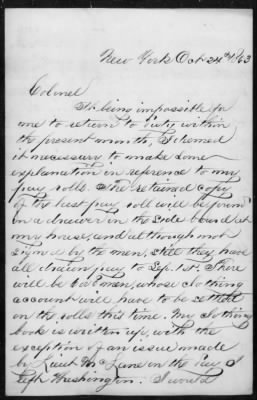 New York Oct 24th 1863
Colonel
It being impossible for
me to return to duty within
the present month, I deemed
it necessary to make some
explanation in reference to my
pay rolls. The retained copy
of the last pay roll will be found
in a drawer in the side board at
my house, and although not
signed by the men, still they have
all drawn pay to Sep. 1st. There
will be men, whose clothing
account will have to be settled
on the rolls this time. My clothing
book is written up, with the
exception of an issue made
by Lieut McLane on the day I
left Washington. I would